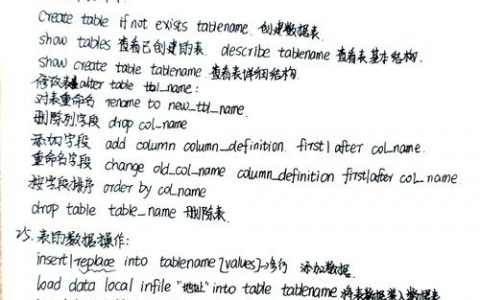 create table if not exists tablename. 创建数据表.
show tables 查看已创建的表. describe tablename 查看表基本结构.
show create table tablename 查看表详细结构.
修改表 alter table tbl_name:
对表重命名 rename to new_tbl_name.
删除列字段 drop col_name
添加字段 add column column_definition. first|after col_name.
重命名字段 change old_col_name column_definition first|after col_name.
按字段排序 order by col_name
drop table table_name 删除表.
25. 表的数据操作:
insert|replace into tablename [values]->多行 添加数据.
load data local infile "地址" into table tablename 将表数据装入数据表